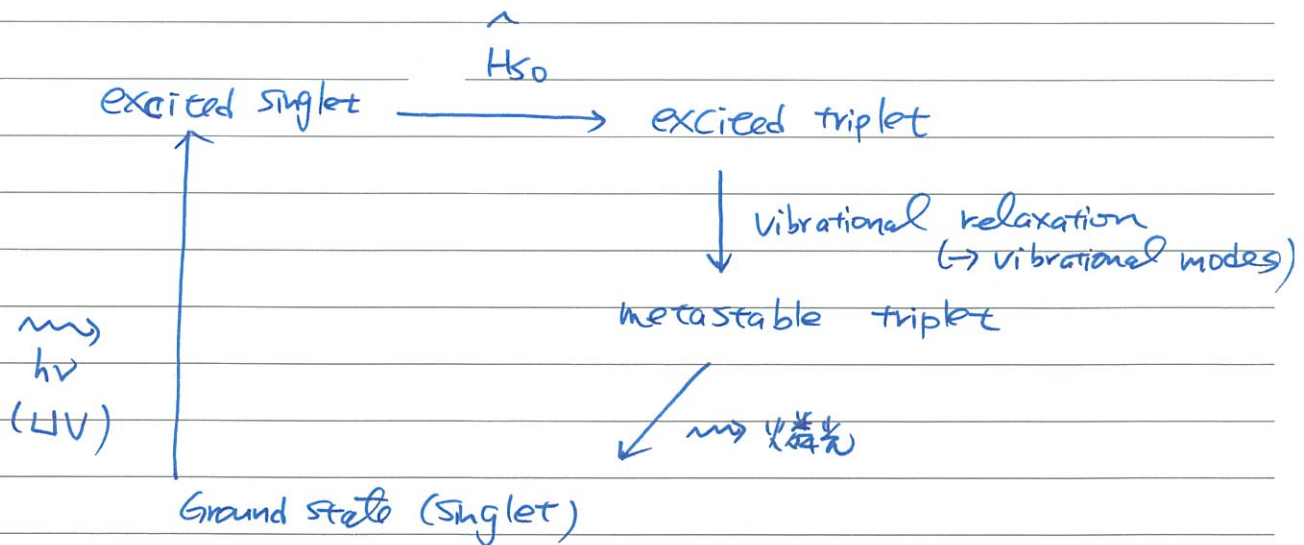 Ĥso
excited singlet → excited triplet
vibrational relaxation
(→ vibrational modes)
metastable triplet
hν
(UV)
燐光
Ground state (singlet)